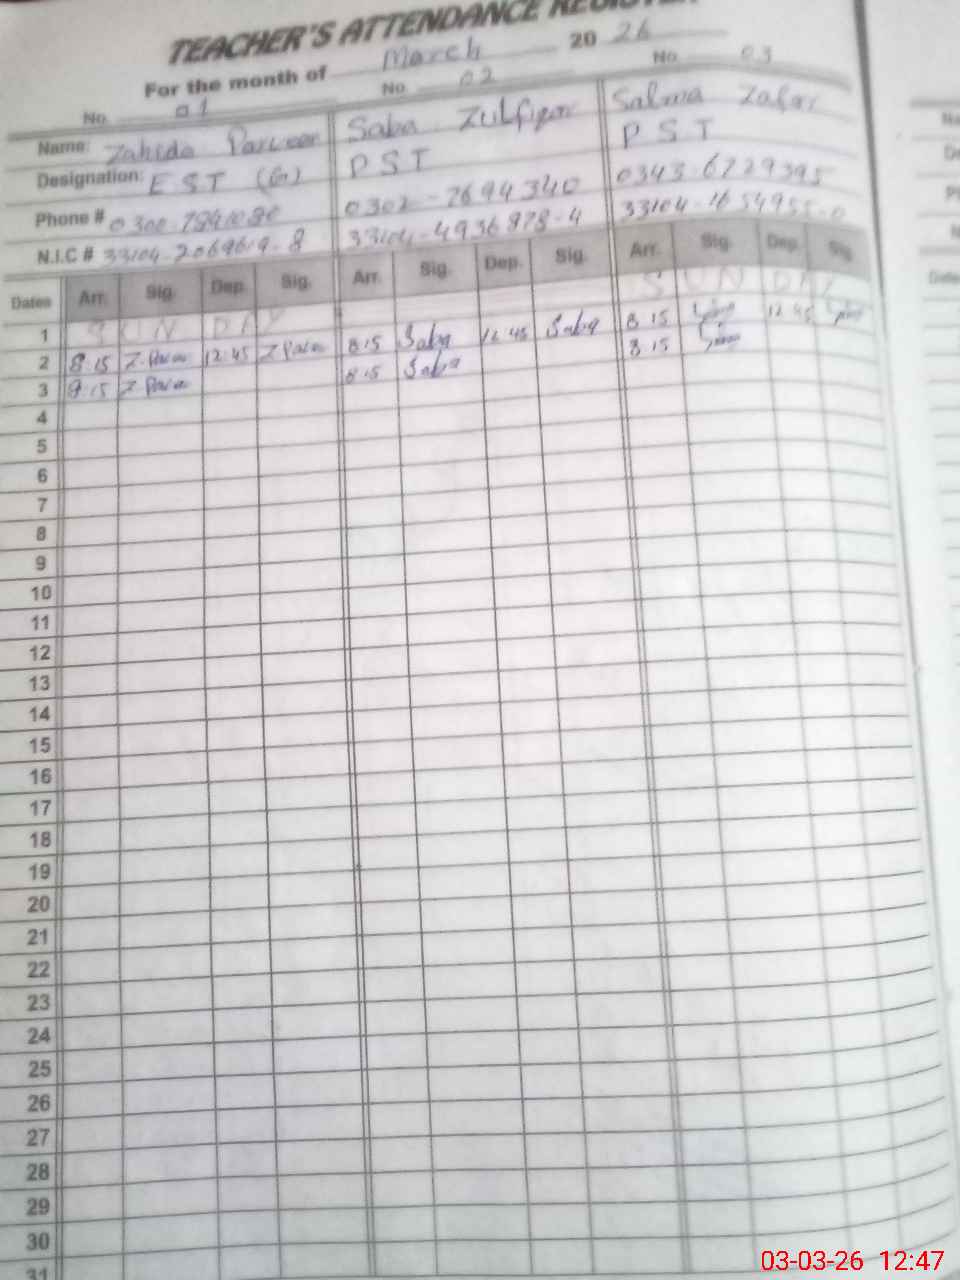 TEACHER'S ATTENDANCE REGISTER
For the month of March 20 26
No. 01 No. 02 No. 03
Name: Zahida Parveen Saba Zulfiqar Salma Zafar
Designation: EST (G) PST PST
Phone # 0300-7841080 0302-7694340 0343-6729395
N.I.C # 33104-2069619-8 33104-4936978-4 33104-1654955-0
Dates Arr. Sig. Dep. Sig. Arr. Sig. Dep. Sig. Arr. Sig. Dep. Sig.
1 SUNDAY SUNDAY
2 8:15 Z.Parveen 12:45 Z.Parveen 8:15 Saba 12:45 Saba 8:15 12:45
3 8:15 Z.Parveen 8:15 Saba 8:15
4
5
6
7
8
9
10
11
12
13
14
15
16
17
18
19
20
21
22
23
24
25
26
27
28
29
30
31
03-03-26 12:47